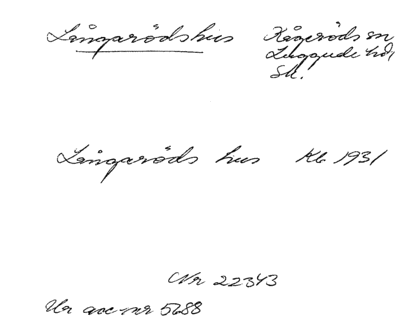 Långarödshus Kågeröds sn
Luggude hd,
Sk.
Långaröds hus Kb 1931
Nr 22343
Ur acc nr 5688